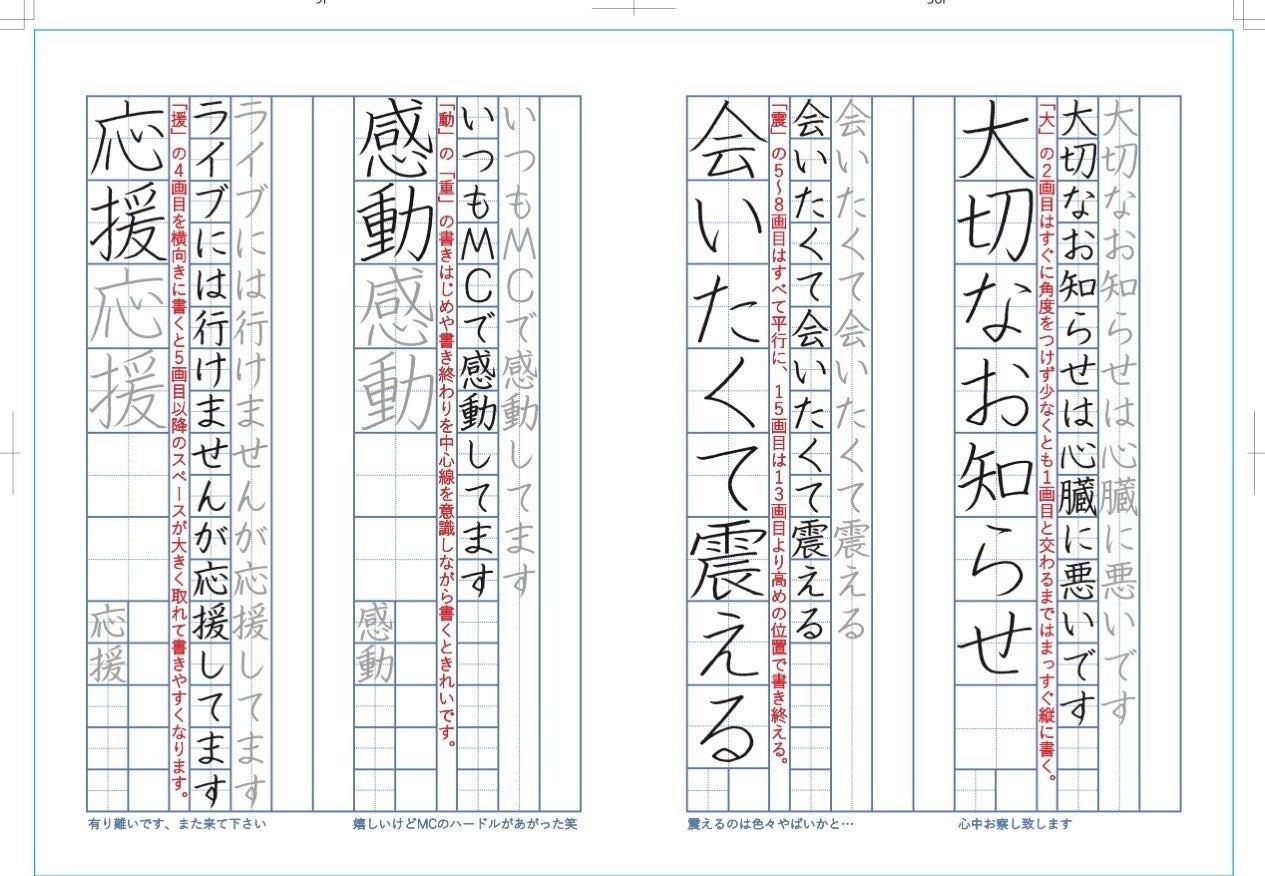 大切なお知らせは心臓に悪いです
大切なお知らせは心臓に悪いです
「大」の2画目はすぐに角度をつけず少なくとも1画目と交わるまではまっすぐ縦に書く。
大切なお知らせ
心中お察し致します
会いたくて会いたくて震える
会いたくて会いたくて震える
「震」の5～8画目はすべて平行に、15画目は13画目より高めの位置で書き終える。
会いたくて震える
震えるのは色々やばいかと…
いつもMCで感動してます
いつもMCで感動してます
「動」の「重」の書きはじめや書き終わりを中心線を意識しながら書くときれいです。
感動感動
感動
嬉しいけどMCのハードルがあがった笑
ライブには行けませんが応援してます
ライブには行けませんが応援してます
「援」の4画目を横向きに書くと5画目以降のスペースが大きく取れて書きやすくなります。
応援応援
応援
有り難いです、また来て下さい